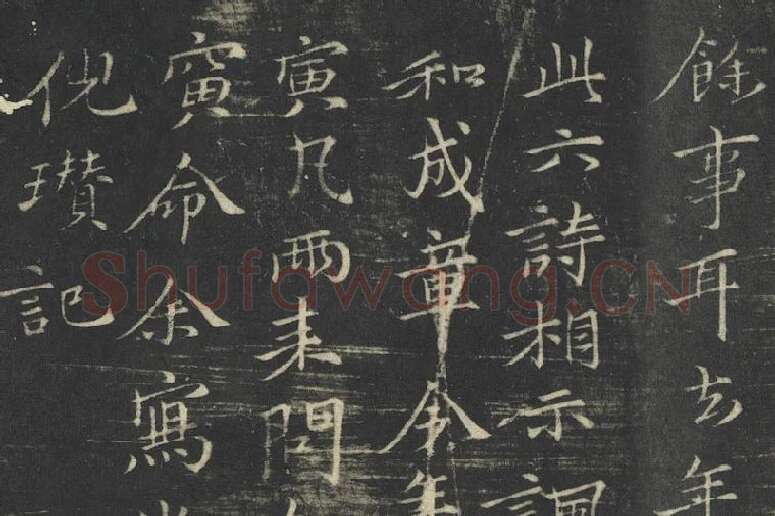 餘事耳去年
此六詩相示
和成章今年
寅凡两来問
寅命余寫
倪瓚記
Shufawang.CN